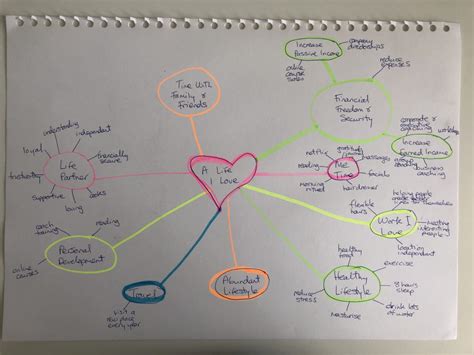 A Life
I Love
Time With
Family &
Friends
Increase
Passive Income
company
directorships
online
course
sales
reduce
expenses
Financial
Freedom &
Security
corporate &
executive
coaching
workshops
Increase
Earned Income
group
coaching
business
coaching
Me
Time
gratitude
journal
massages
netflix
reading
facials
morning
ritual
hairdresser
Work I
Love
helping people
flexible
hours
meeting
interesting
people
location
independent
Healthy
Lifestyle
healthy
food
exercise
8 hours
sleep
drink lots
of water
moisturise
reduce
stress
Abundant
Lifestyle
Travel
visit a
new place
every year
Personal
Development
coach
training
reading
online
courses
Life
Partner
understanding
independent
loyal
financially
secure
supportive
loving